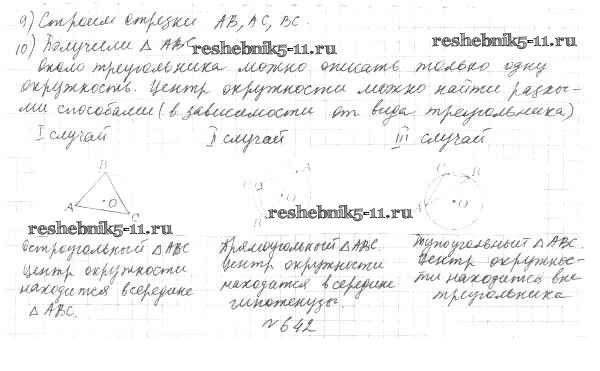 9) Строим отрезки AB, AC, BC.
10) Получили △ ABC
reshebnik5-11.ru
reshebnik5-11.ru
около треугольника можно описать только одну
окружность. Центр окружности можно найти разны-
ми способами (в зависимости от вида треугольника)
I случай
II случай
III случай
B
A
O
C
A
C
O
B
A
B
C
O
reshebnik5-11.ru
reshebnik5-11.ru
Остроугольный △ABC
Центр окружности
находится в середине
△ ABC.
Прямоугольный △ABC.
Центр окружности
находится в середине
гипотенузы.
Тупоугольный △ABC.
Центр окружнос-
ти находится вне
треугольника
№642